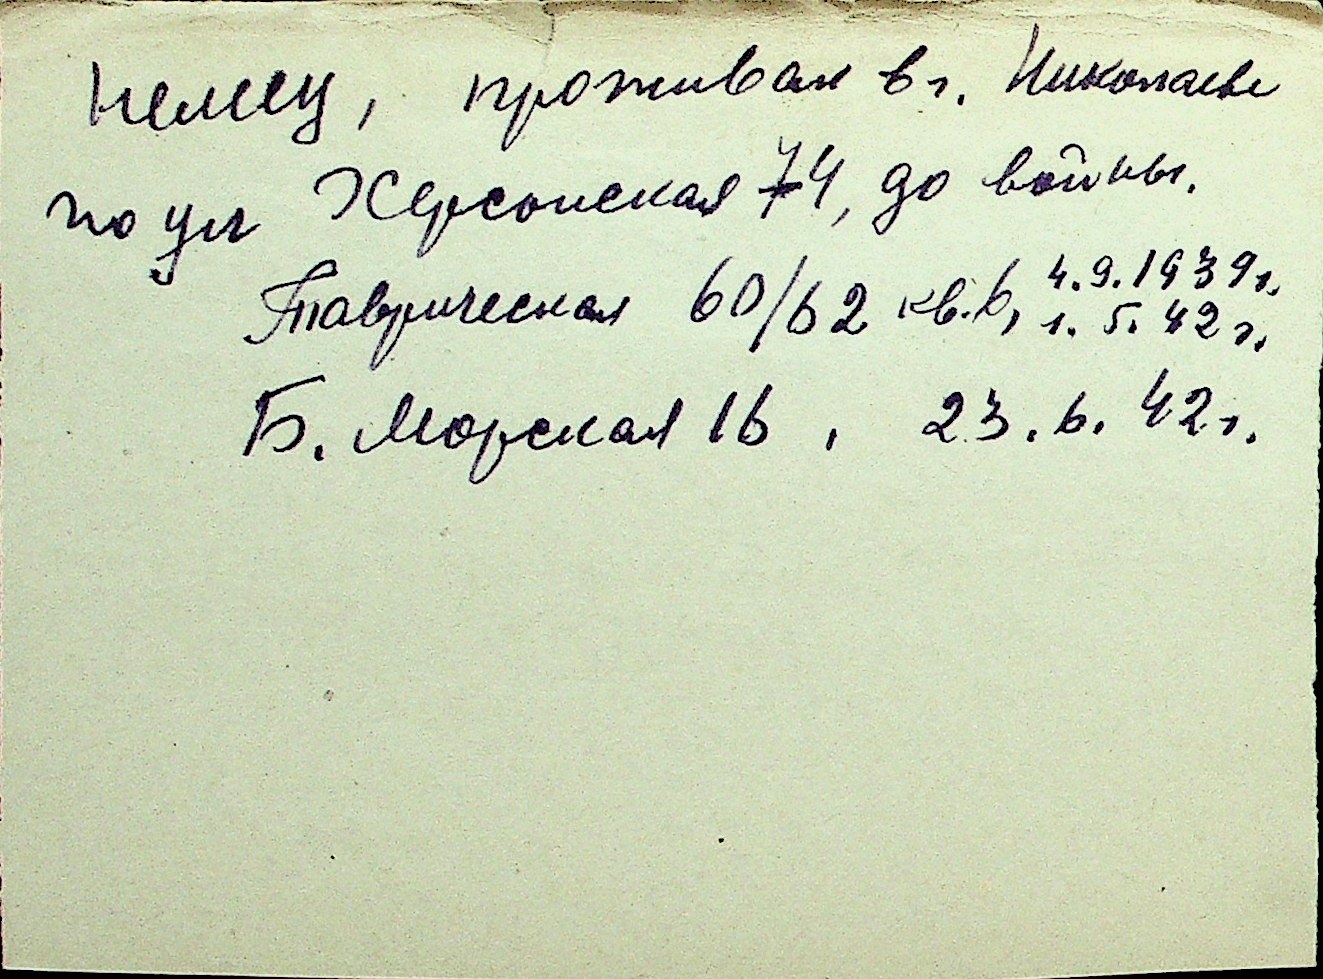 Немец, проживал в г. Николаеве
по ул Херсонская 74, до войны.
Таврическая 60/62 кв. 6, 4.9.1939г.
1. 5. 42 г.
Б. Морская 16, 23. 6. 42 г.